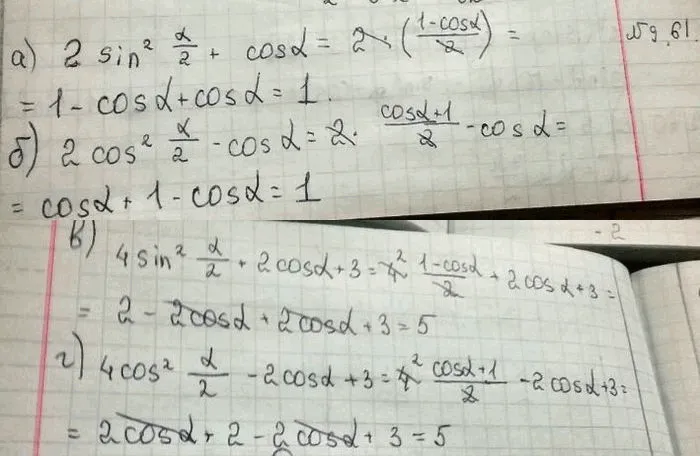 а) 2 sin² α/2 + cosα = 2 · (1-cosα/2) = №9.61.
= 1 - cosα + cosα = 1.
б) 2 cos² α/2 - cosα = 2 · cosα+1/2 - cosα =
= cosα + 1 - cosα = 1
- 2
в) 4 sin² α/2 + 2cosα + 3 = 4² 1-cosα/2 + 2cosα + 3 =
= 2 - 2cosα + 2cosα + 3 = 5
г) 4cos² α/2 - 2cosα + 3 = 4² cosα+1/2 - 2cosα + 3 =
= 2cosα + 2 - 2cosα + 3 = 5